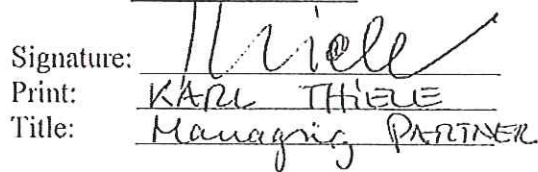 Signature: Thiele
Print: KARL THIELE
Title: Managing PARTNER